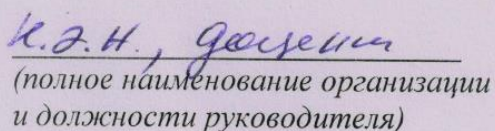 к.э.н., доцент
(полное наименование организации
и должности руководителя)